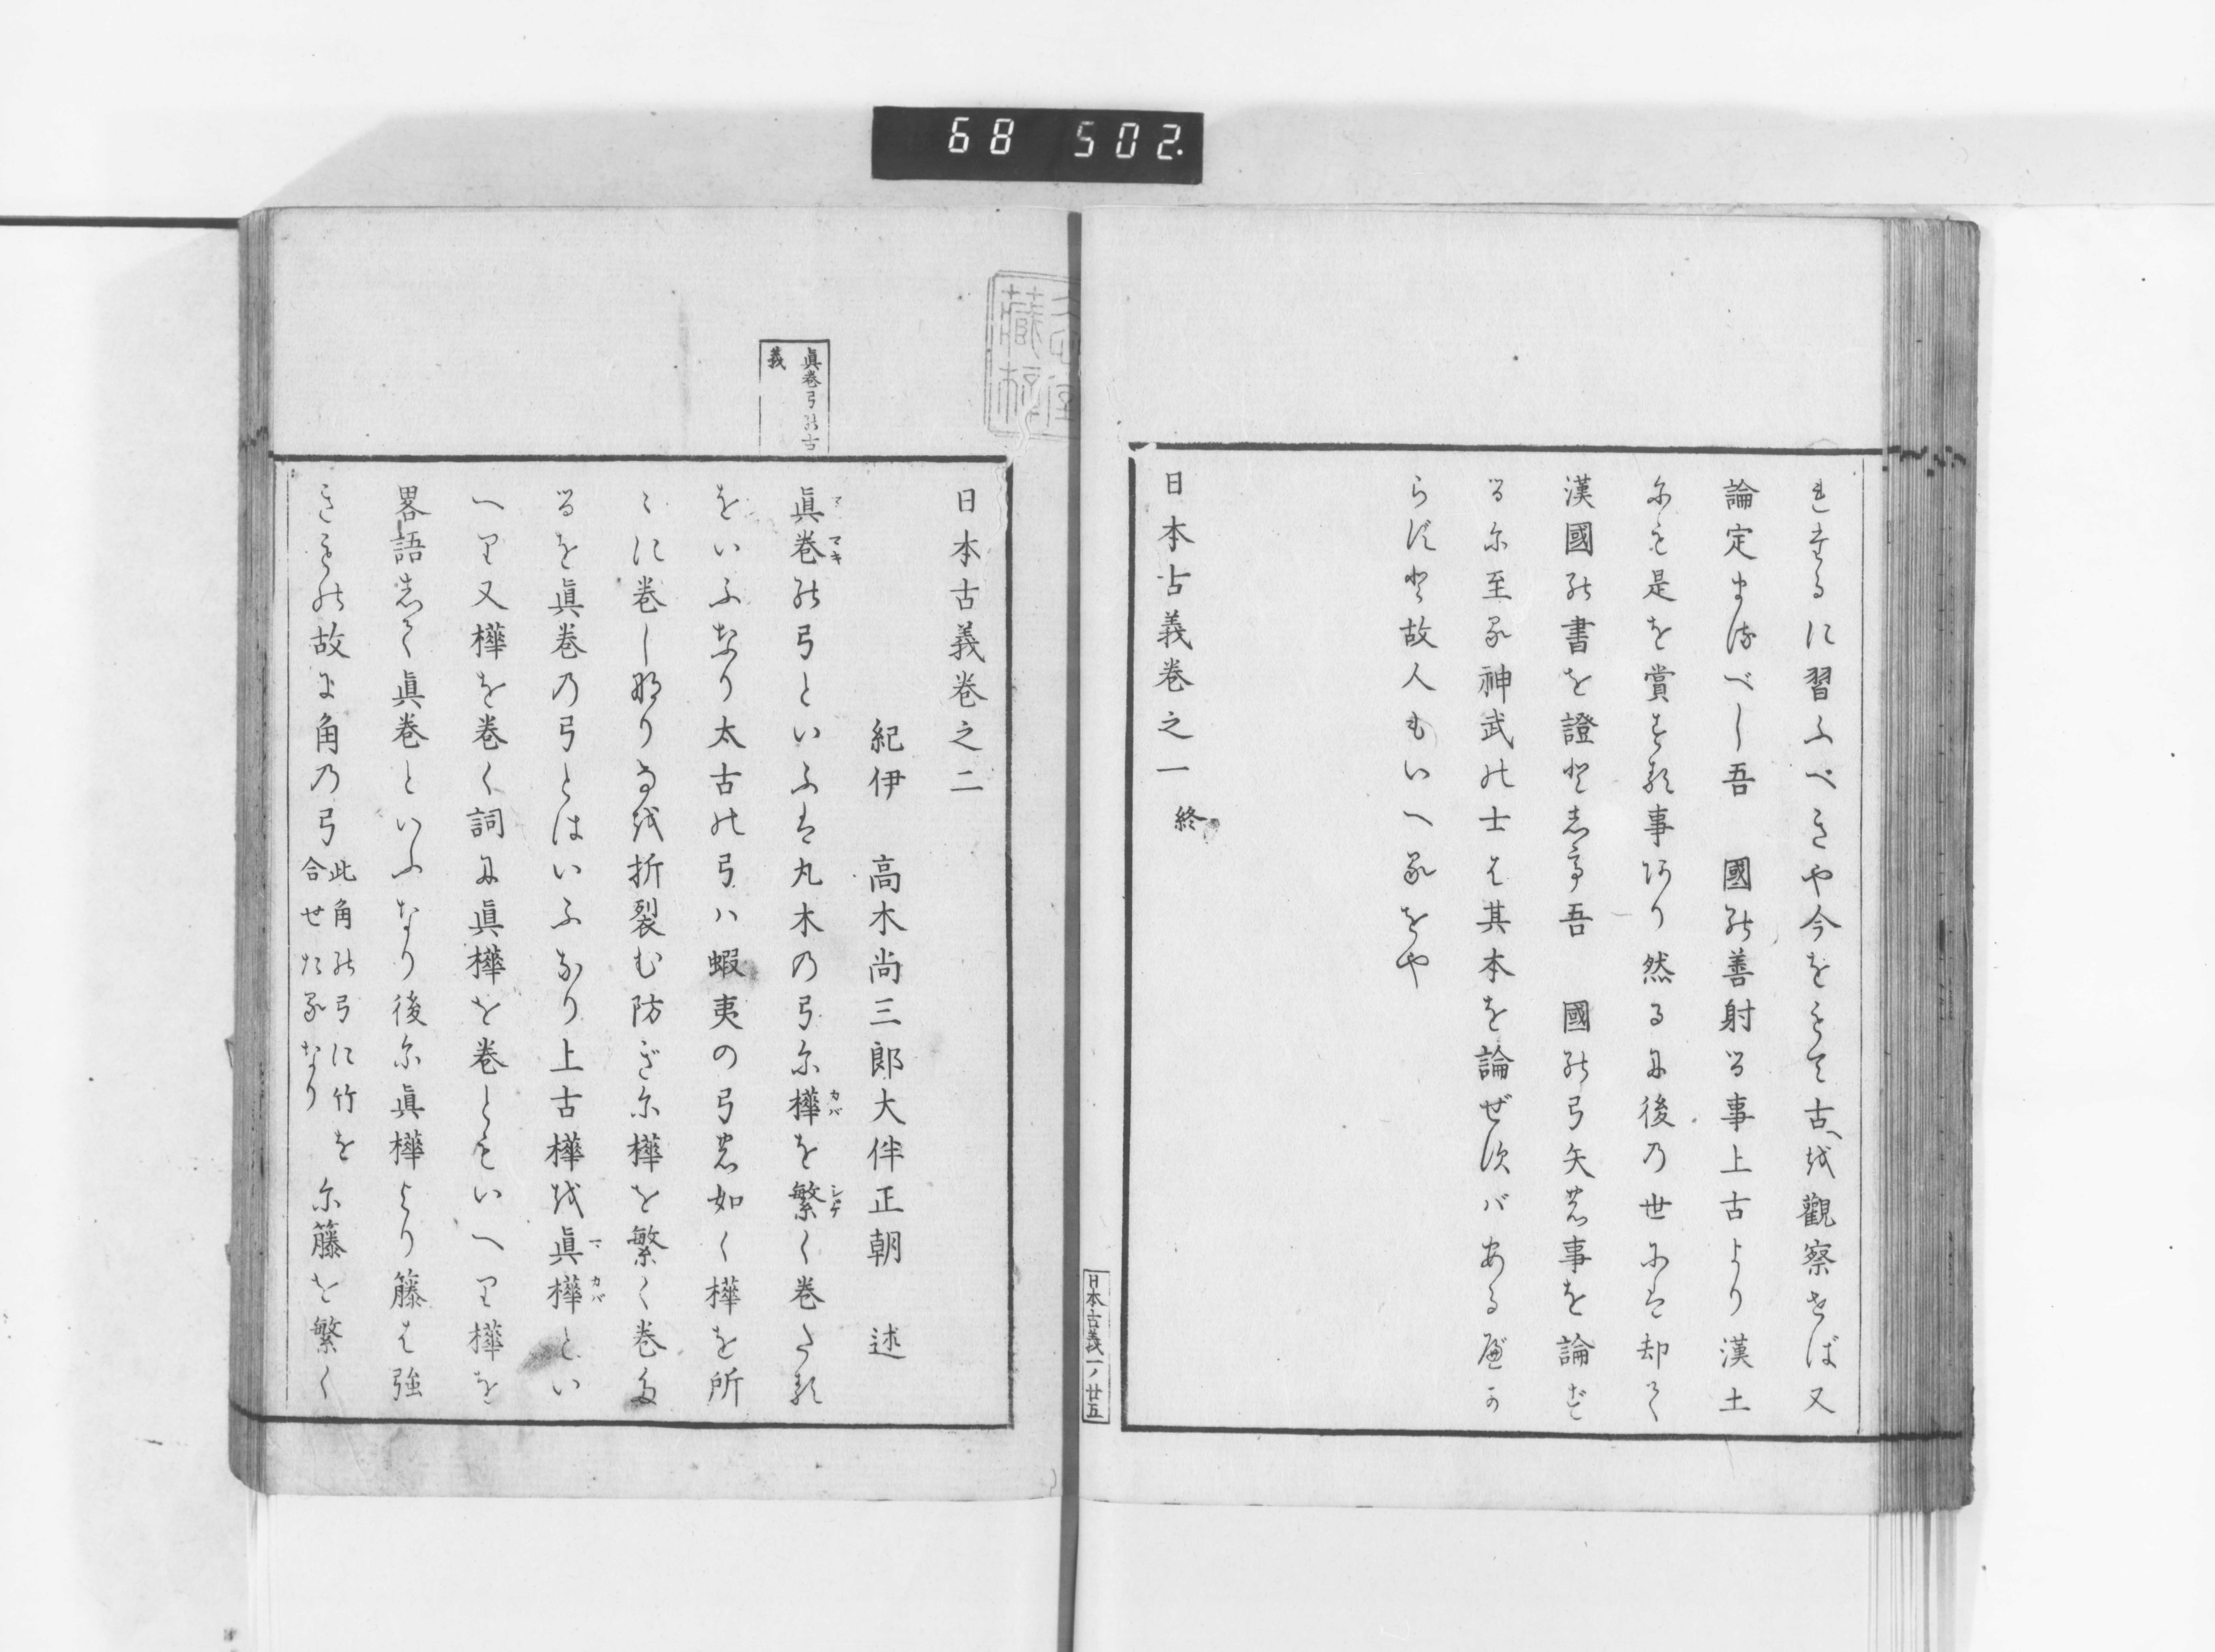 68 502.
れまるに習ふべきや今をもて古へを觀察せば又
論定まるべし吾 國の善射る事上古より漢土
にも是を賞する事あり然るに後乃世には却て
漢國の書を證としるて吾 國の弓矢の事を論ず
るに至る神武の士は其本を論ぜずバあるべか
らずと故人もいへるをや
日本古義巻之一 終
日本古義一ノ廿五
眞巻弓の古
義
日本古義巻之二
紀伊 高木尚三郎大伴正朝 述
眞巻の弓といふは丸木の弓に樺を繁く巻たる
マ マキ カバ シゲ
をいふなり太古の弓ハ蝦夷の弓の如く樺を所
〻に巻しなりそを折裂む防ぎに樺を繁く巻た
るを眞巻乃弓とはいふなり上古樺を眞樺とい
マ カバ
へり又樺を巻く詞に眞樺を巻ともいへり樺を
畧語して眞巻といふなり後に眞樺より籐は強
きもの故に角乃弓
此角の弓に竹を
合せたるなり
に籐を繁く